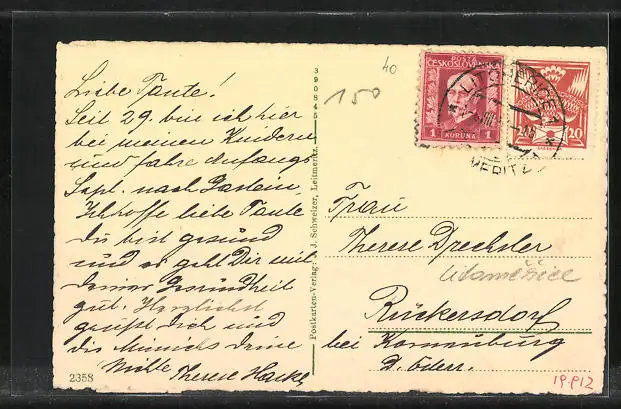 Liebe Tante!
Seit 29. bin ich hier
bei meinen Kindern
und fahre anfangs
Sept. nach Gastein.
Ich hoffe liebe Tante
Du bist gesund
und es geht Dir mit
Deiner Gesundheit
gut. Herzlichst
grüßt Dich und
die Deine
Therese
2358
390845
Postkarten-Verlag: A. J. Schweizer, Leitmeritz.
40
150
POSTA
ČESKOSLOVENSKÁ
1 KORUNA 1
20
LITOMĚŘICE 1
Frau
Therese Drechsler
Litoměřice
Rückersdorf
bei Korneuburg
N. Österr.
19.P12